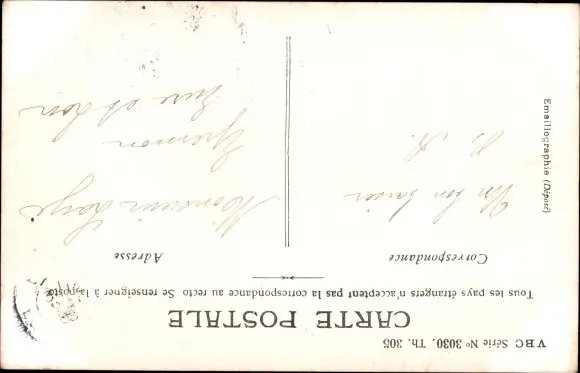 VBC Série No 3030, Th. 305
CARTE POSTALE
Tous les pays étrangers n'acceptent pas la correspondance au recto. Se renseigner à la poste
Correspondance
Adresse
Un bon baiser
Monsieur
Epernon
Eure et Loir
Emaillographie (Déposé)